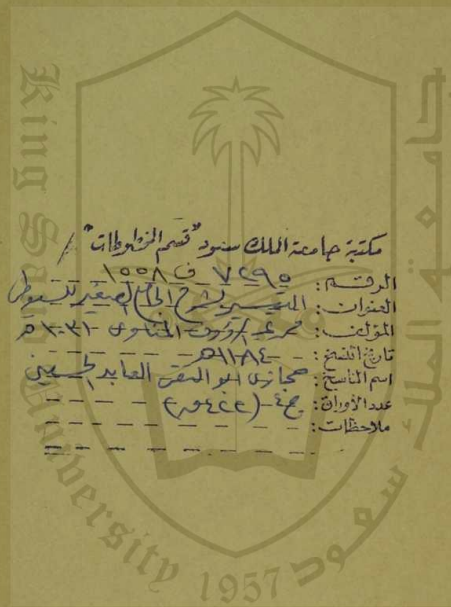 King Saud University
جامعة الملك سعود
1957
مكتبة جامعة الملك سعود "قسم المخطوطات"
الرقم: ٧٢٩٥ ف ١٥٥٨
العنوان: التيسير لشرح الجامع الصغير للسيوطي
المؤلف: محمد عبد الرؤوف المناوي ١٠٣١ هـ
تاريخ النسخ: ١١٨٤ هـ
اسم الناسخ: حجازي ابو التقى العابد الحسيني
عدد الأوراق: ج٤ - (٤٢٢ ق)
ملاحظات: